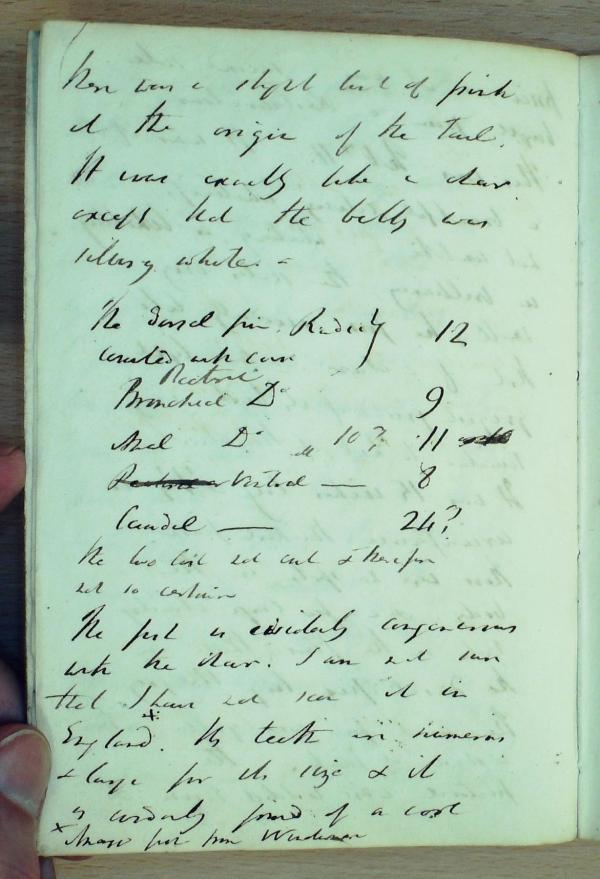 there was a slight tint of pink
at the origin of the tail.
It was exactly like a char
except that the belly was
silvery white. -
The Dorsal fin. 12
counted with care
Pectoral
Branchial Do 9
Anal Do 10? 11
Ventral — 8
Caudal — 24?
The two last not and therefore
not so certain
The fish is evidently congenerous
with the char. I am not sure
that I have not seen it in
England. Its teeth are numerous
& large for its size & it
is certainly fond of a cool
x fish from Windermere